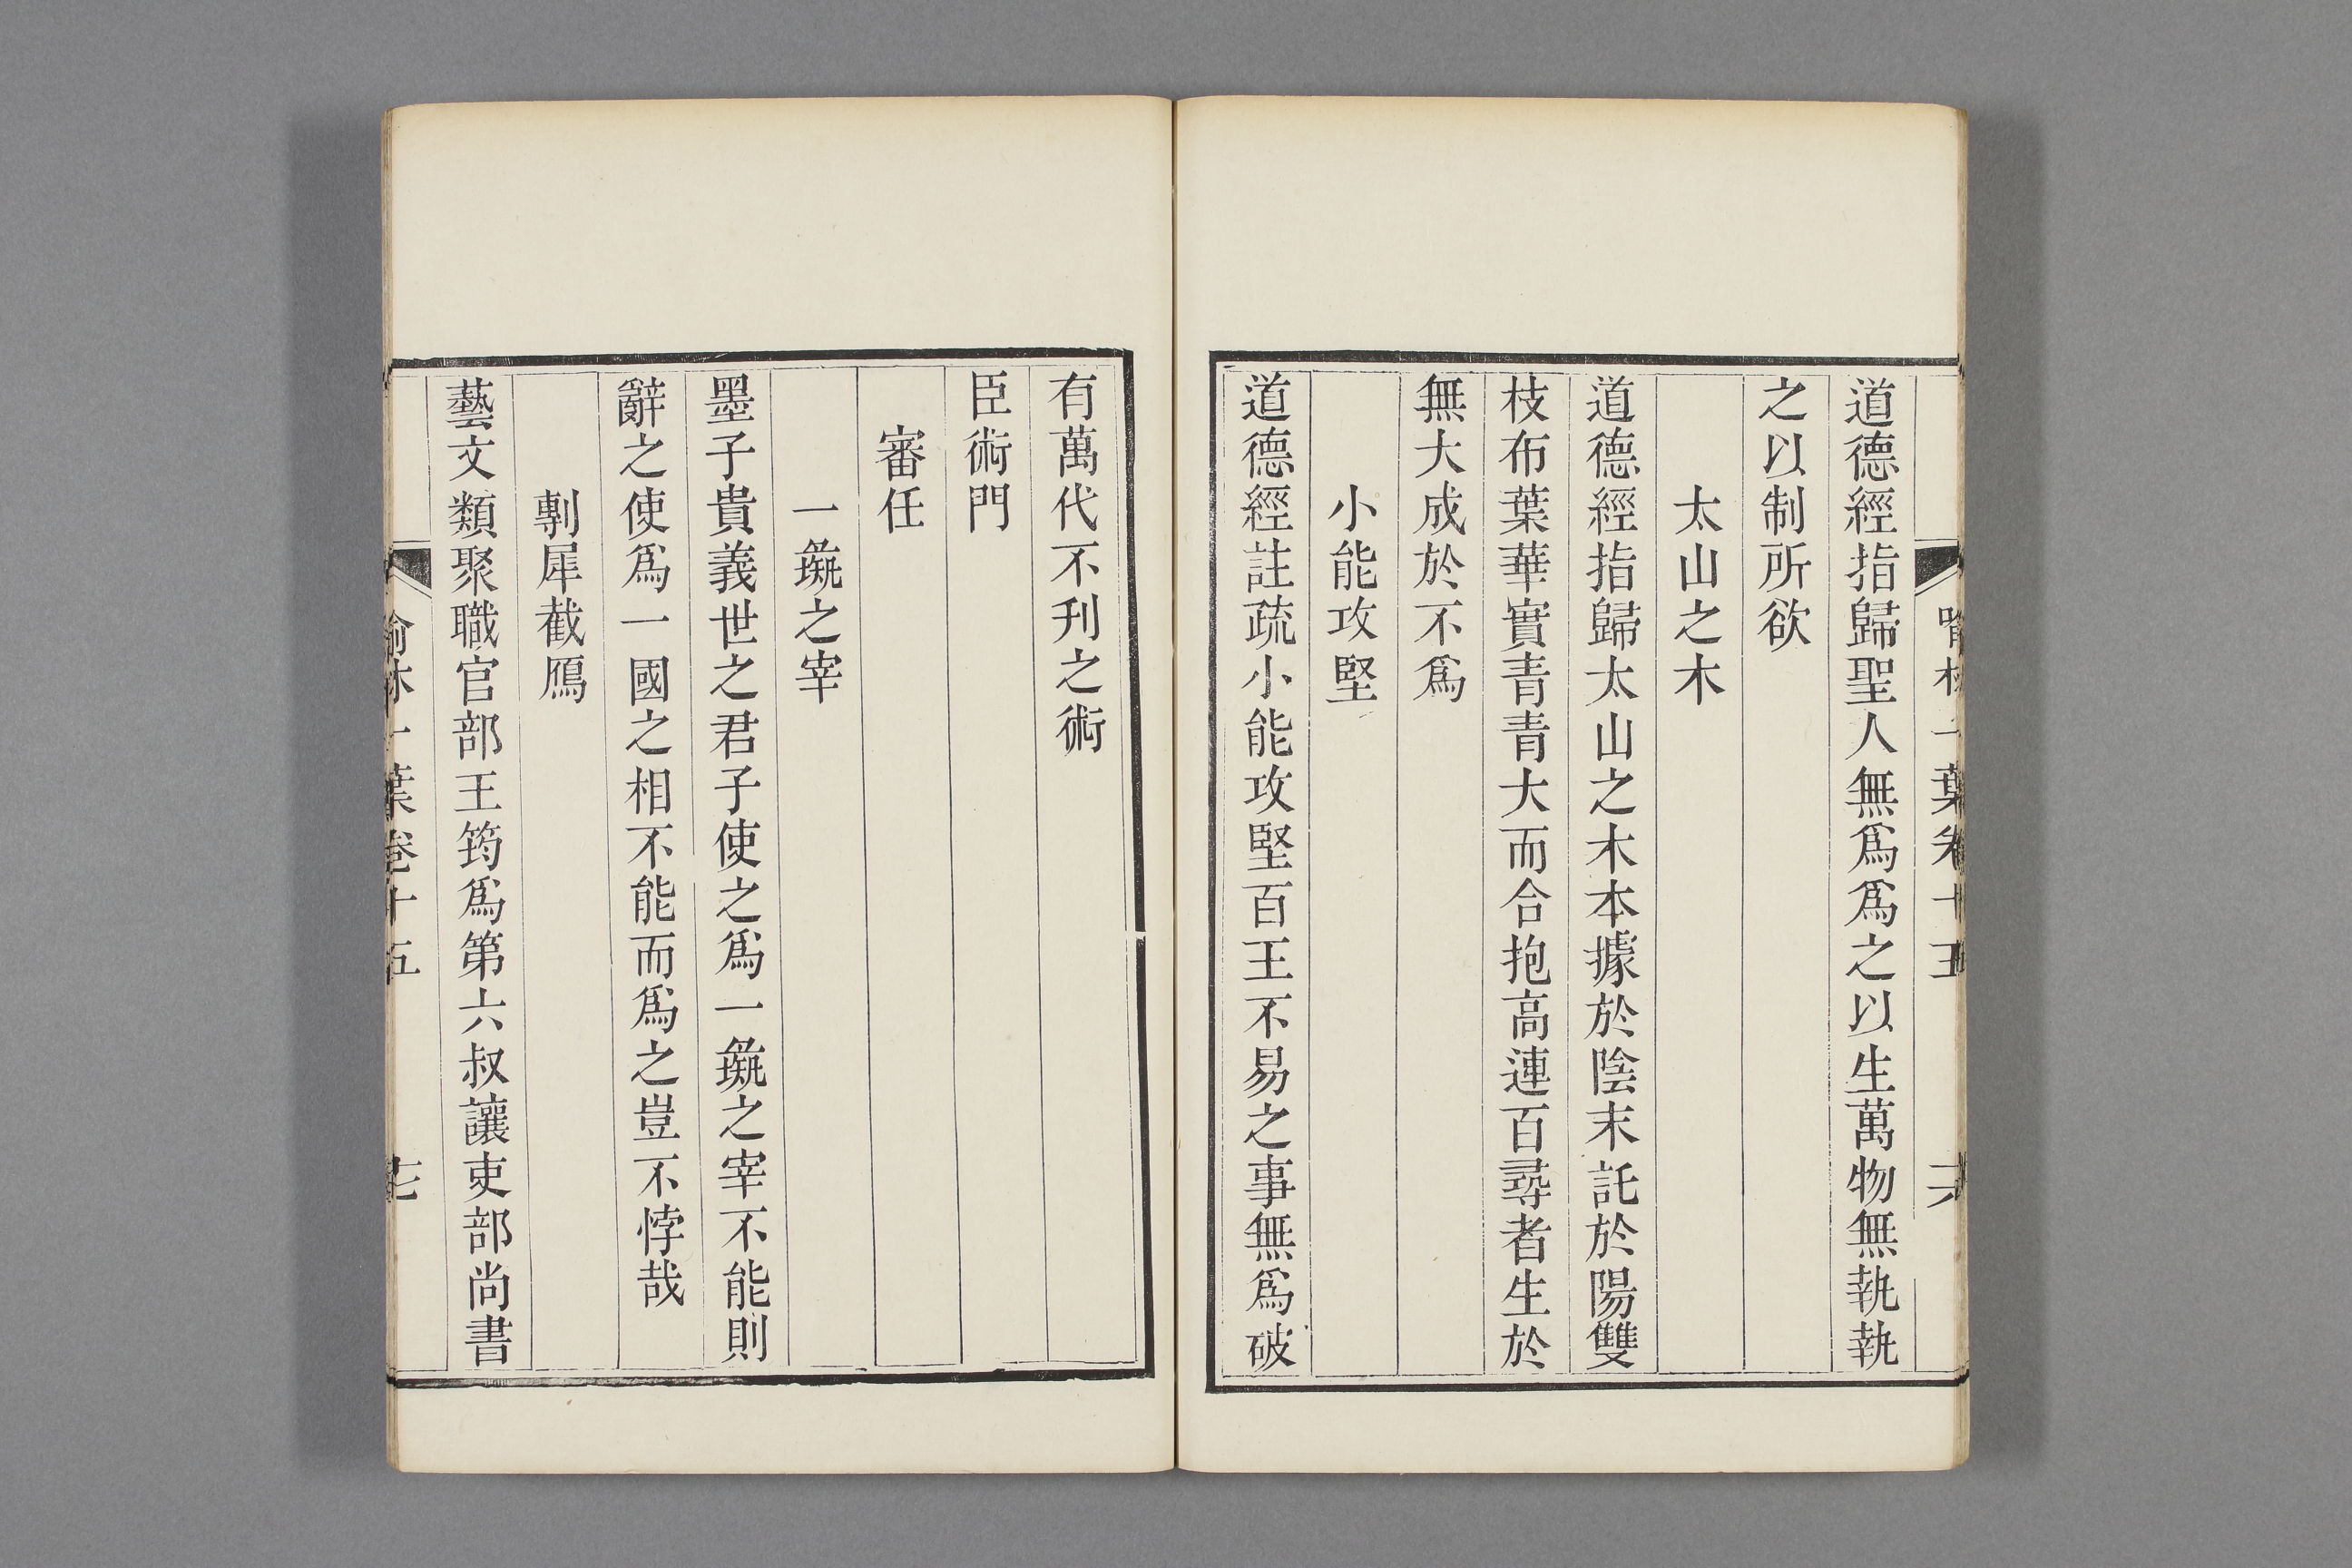 道德經指歸聖人無爲爲之以生萬物無執執
之以制所欲
太山之木
道德經指歸太山之木本據於陰末託於陽雙
枝布葉華實青青大而合抱高連百尋者生於
無大成於不爲
小能攻堅
道德經註疏小能攻堅百王不易之事無爲破
有萬代不刋之術
臣術門
審任
一㼁之宰
墨子貴義世之君子使之爲一㼁之宰不能則
辭之使爲一國之相不能而爲之豈不悖哉
剸犀截鴈
藝文類聚職官部王筠爲第六叔讓吏部尚書
喻林一葉卷十五